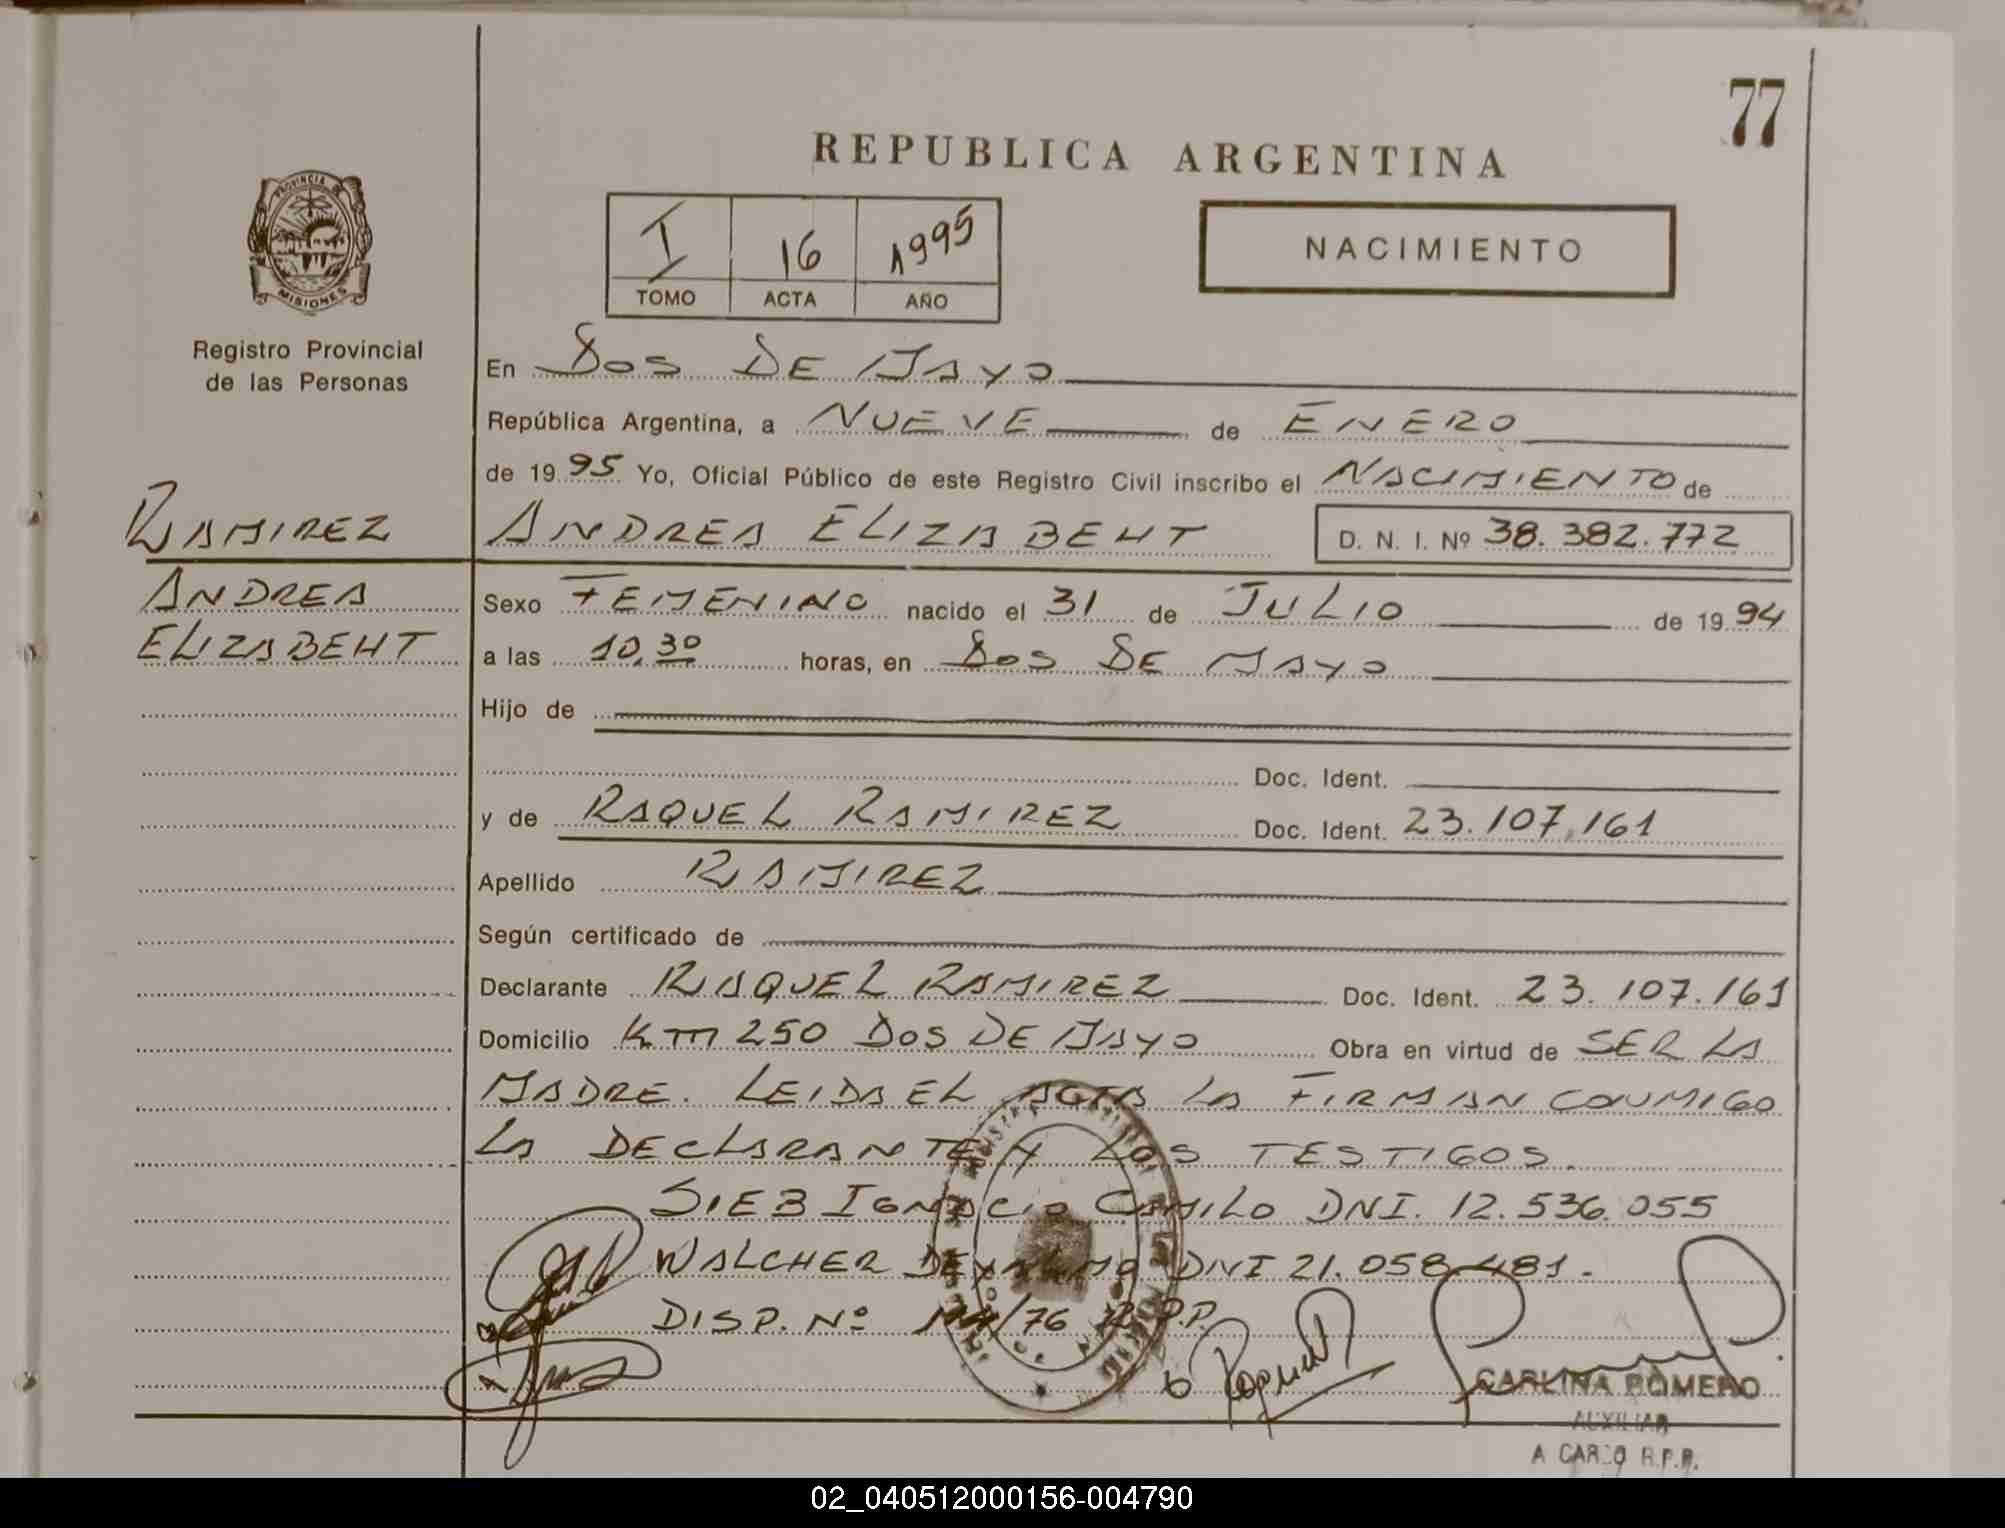 77
REPUBLICA ARGENTINA
PROVINCIA DE
MISIONES
Registro Provincial
de las Personas
I 16 1995
TOMO ACTA AÑO
NACIMIENTO
En DOS DE MAYO
República Argentina, a NUEVE de ENERO
de 1995 Yo, Oficial Público de este Registro Civil inscribo el NACIMIENTO de
RAMIREZ ANDREA ELIZABEHT D. N. I. Nº 38.382.772
ANDREA Sexo FEMENINO nacido el 31 de JULIO de 1994
ELIZABEHT a las 10,30 horas, en DOS DE MAYO
Hijo de
Doc. Ident.
y de RAQUEL RAMIREZ Doc. Ident. 23.107.161
Apellido RAMIREZ
Según certificado de
Declarante RAQUEL RAMIREZ Doc. Ident. 23.107.161
Domicilio Km 250 DOS DE MAYO Obra en virtud de SER LA
MADRE. LEIDA EL ACTA LA FIRMAN CONMIGO
LA DECLARANTE Y LOS TESTIGOS.
SIEB IGNACIO CAMILO DNI. 12.536.055
WALCHER DNI 21.058.481.
DISP. Nº /76 R.P.P.
CARLINA ROMERO
AUXILIAR
A CARGO R.P.P.
02_040512000156-004790